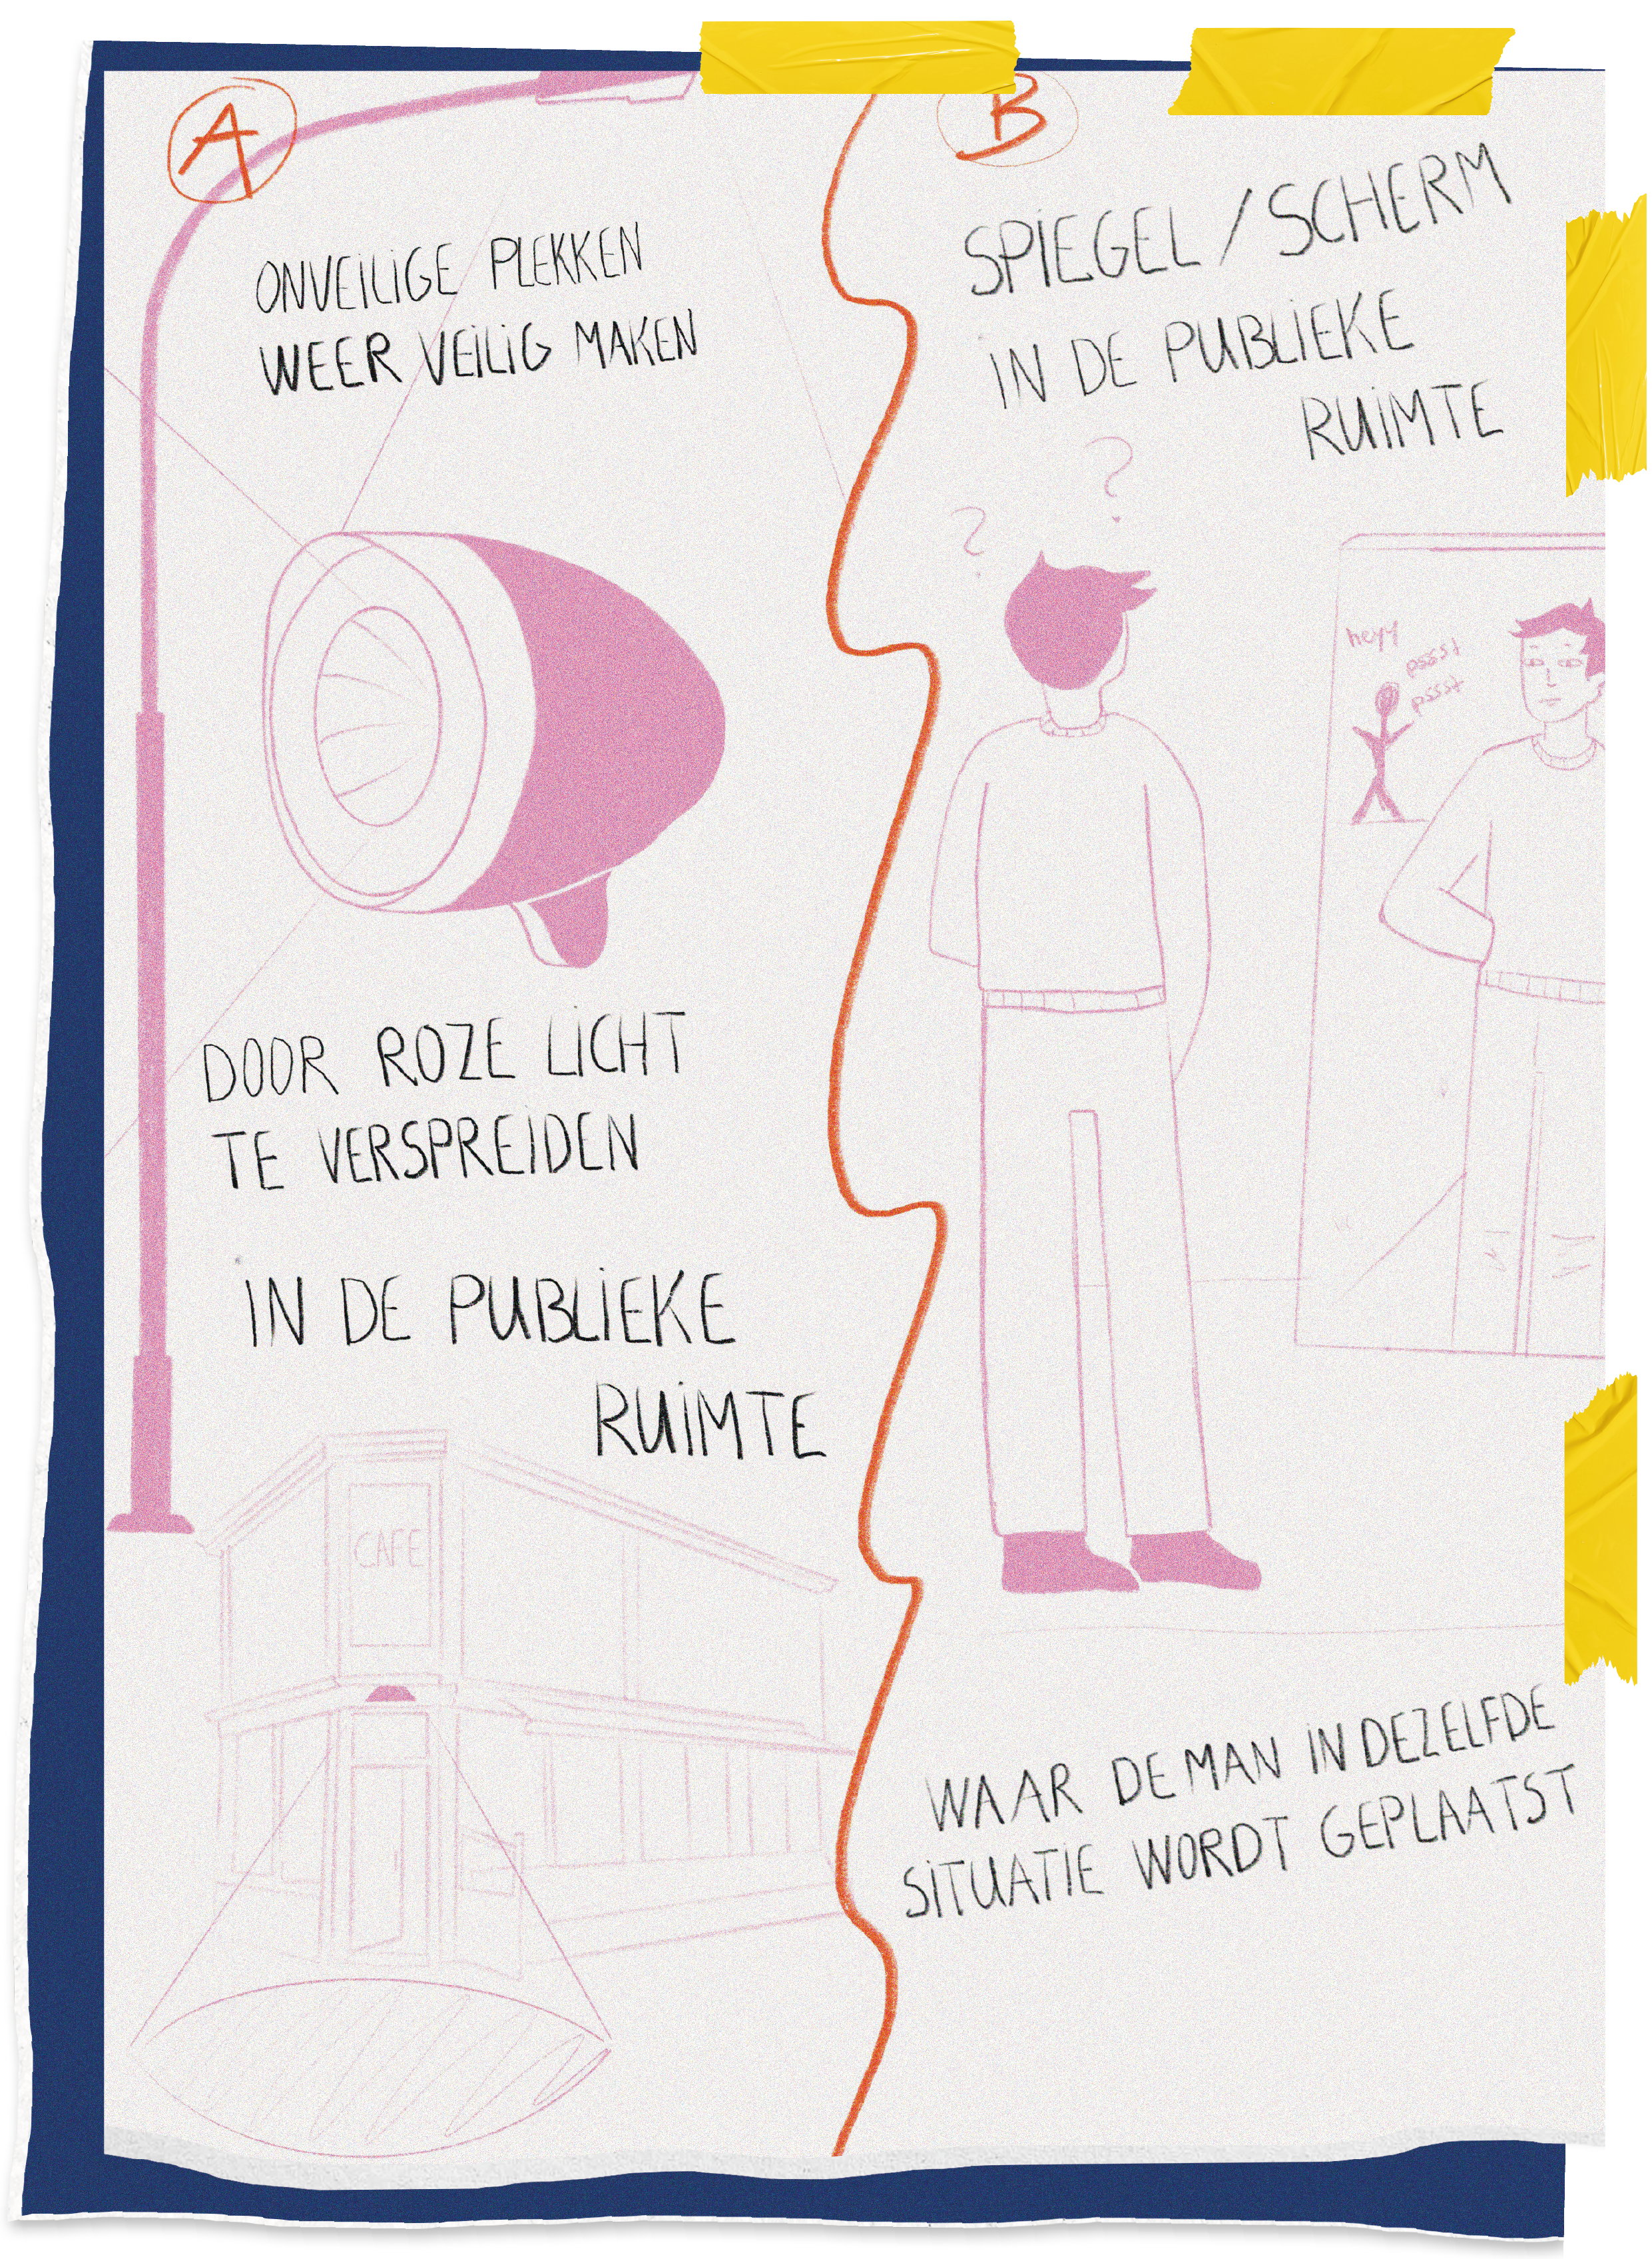 A
ONVEILIGE PLEKKEN
WEER VEILIG MAKEN
DOOR ROZE LICHT
TE VERSPREIDEN
IN DE PUBLIEKE
RUIMTE
CAFE
B
SPIEGEL / SCHERM
IN DE PUBLIEKE
RUIMTE
?
?
heyy
pssst
pssst
WAAR DE MAN IN DEZELFDE
SITUATIE WORDT GEPLAATST